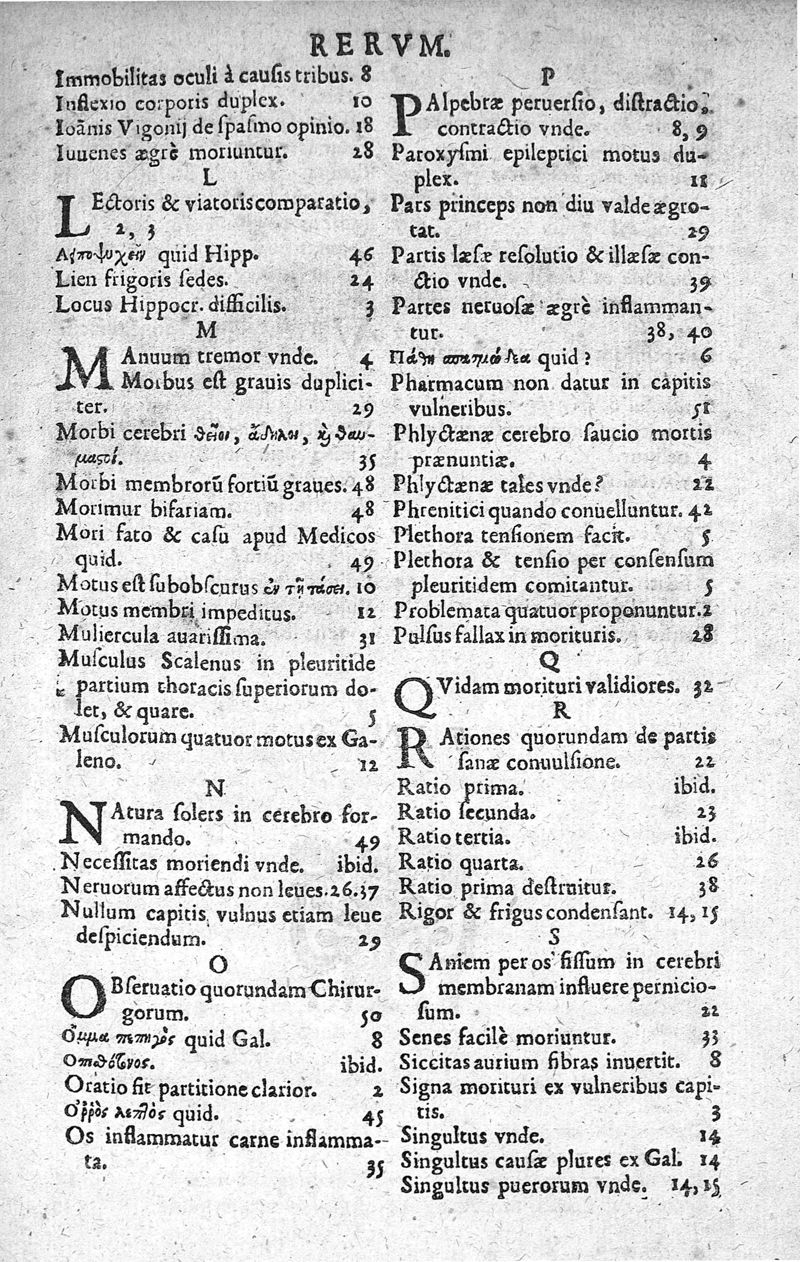 RERVM.
Immobilitas oculi à causis tribus. 8
Inflexio corporis duplex. 10
Ioānis Vigonij de spasmo opinio. 18
Iuuenes ægrè moriuntur. 28
L
LEctoris & viatoris comparatio,
2, 3
quid Hipp. 46
Lien frigoris sedes. 24
Locus Hippocr. difficilis. 3
M
MAnuum tremor vnde. 4
Morbus est grauis duplici-
ter. 29
Morbi cerebri θεῖοι, ἄδηλοι, ϗ θαυ-
μαστοί. 35
Morbi membrorū fortiū graues. 48
Morimur bifariam. 48
Mori fato & casu apud Medicos
quid. 49
Motus est subobscurus ἐν τῇ τάσει. 10
Motus membri impeditus. 12
Muliercula auarissima. 31
Musculus Scalenus in pleuritide
partium thoracis superiorum do-
let, & quare. 5
Musculorum quatuor motus ex Ga-
leno. 12
N
NAtura solers in cerebro for-
mando. 49
Necessitas moriendi vnde. ibid.
Neruorum affectus non leues. 26.37
Nullum capitis vulnus etiam leue
despiciendum. 29
O
OBseruatio quorundam Chirur-
gorum. 50
Ο῎μμα πεπηγὸς quid Gal. 8
Ο᾽πισθότονος. ibid.
Oratio fit partitione clarior. 2
Ο᾽ῤῥὸς λεπτὸς quid. 45
Os inflammatur carne inflamma-
ta. 35
P
PAlpebræ peruersio, distractio,
contractio vnde. 8, 9
Paroxysmi epileptici motus du-
plex. 11
Pars princeps non diu valde ægro-
tat. 29
Partis læsæ resolutio & illæsæ con-
ctio vnde. 39
Partes neruosæ ægrè inflamman-
tur. 38, 40
quid? 6
Pharmacum non datur in capitis
vulneribus. 51
Phlyctænæ cerebro saucio mortis
prænuntiæ. 4
Phlyctænæ tales vnde? 22
Phrenitici quando conuelluntur. 42
Plethora tensionem facit. 5
Plethora & tensio per consensum
pleuritidem comitantur. 5
Problemata quatuor proponuntur. 2
Pulsus fallax in morituris. 28
Q
QVidam morituri validiores. 32
R
RAtiones quorundam de partis
sanæ conuulsione. 22
Ratio prima. ibid.
Ratio secunda. 23
Ratio tertia. ibid.
Ratio quarta. 26
Ratio prima destruitur. 38
Rigor & frigus condensant. 14, 15
S
SAniem per os fissum in cerebri
membranam influere pernicio-
sum. 22
Senes facilè moriuntur. 33
Siccitas aurium fibras inuertit. 8
Signa morituri ex vulneribus capi-
tis. 3
Singultus vnde. 14
Singultus causæ plures ex Gal. 14
Singultus puerorum vnde. 14, 15